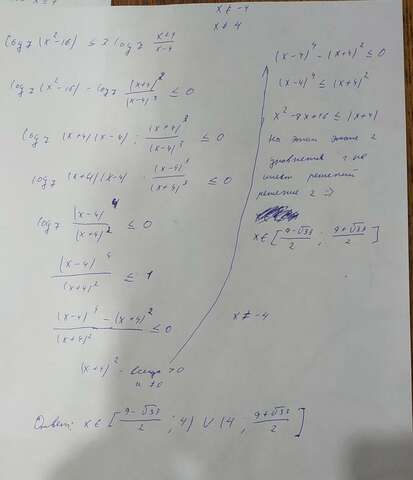 x ≠ -4
x ≠ 4
log₇ (x²-16) ≤ 2 log₇ (x+4)/(x-4)
log₇ (x²-16) - log₇ (x+4)²/(x-4)³ ≤ 0
log₇ (x+4)(x-4) : (x+4)³/(x-4)³ ≤ 0
log₇ (x+4)(x-4) · (x-4)³/(x+4)³ ≤ 0
log₇ (x-4)⁴/(x+4)² ≤ 0
(x-4)⁴/(x+4)² ≤ 1
((x-4)⁴ - (x+4)²)/(x+4)² ≤ 0
(x+4)² - всегда >0
и ≠0
(x-4)⁴ - (x+4)² ≤ 0
(x-4)⁴ ≤ (x+4)²
x² - 8x + 16 ≤ |x+4|
На этом этапе 2
уравнения 1 не
имеет решений
решение 2 =>
x ∈ [(9-√33)/2 ; (9+√33)/2]
x ≠ -4
Ответ: x ∈ [(9-√33)/2 ; 4) ∪ (4 ; (9+√33)/2]